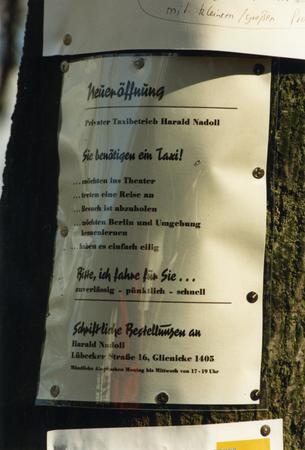 mit kleinem / großen
Neueröffnung
Privater Taxibetrieb Harald Nadoll
Sie benötigen ein Taxi!
...möchten ins Theater
...treten eine Reise an
...Besuch ist abzuholen
...möchten Berlin und Umgebung
kennenlernen
...haben es einfach eilig
Bitte, ich fahre für Sie...
zuverlässig - pünktlich - schnell
Schriftliche Bestellungen an
Harald Nadoll
Lübecker Straße 16, Glienicke 1405
Mündliche Absprachen Montag bis Mittwoch von 17-19 Uhr